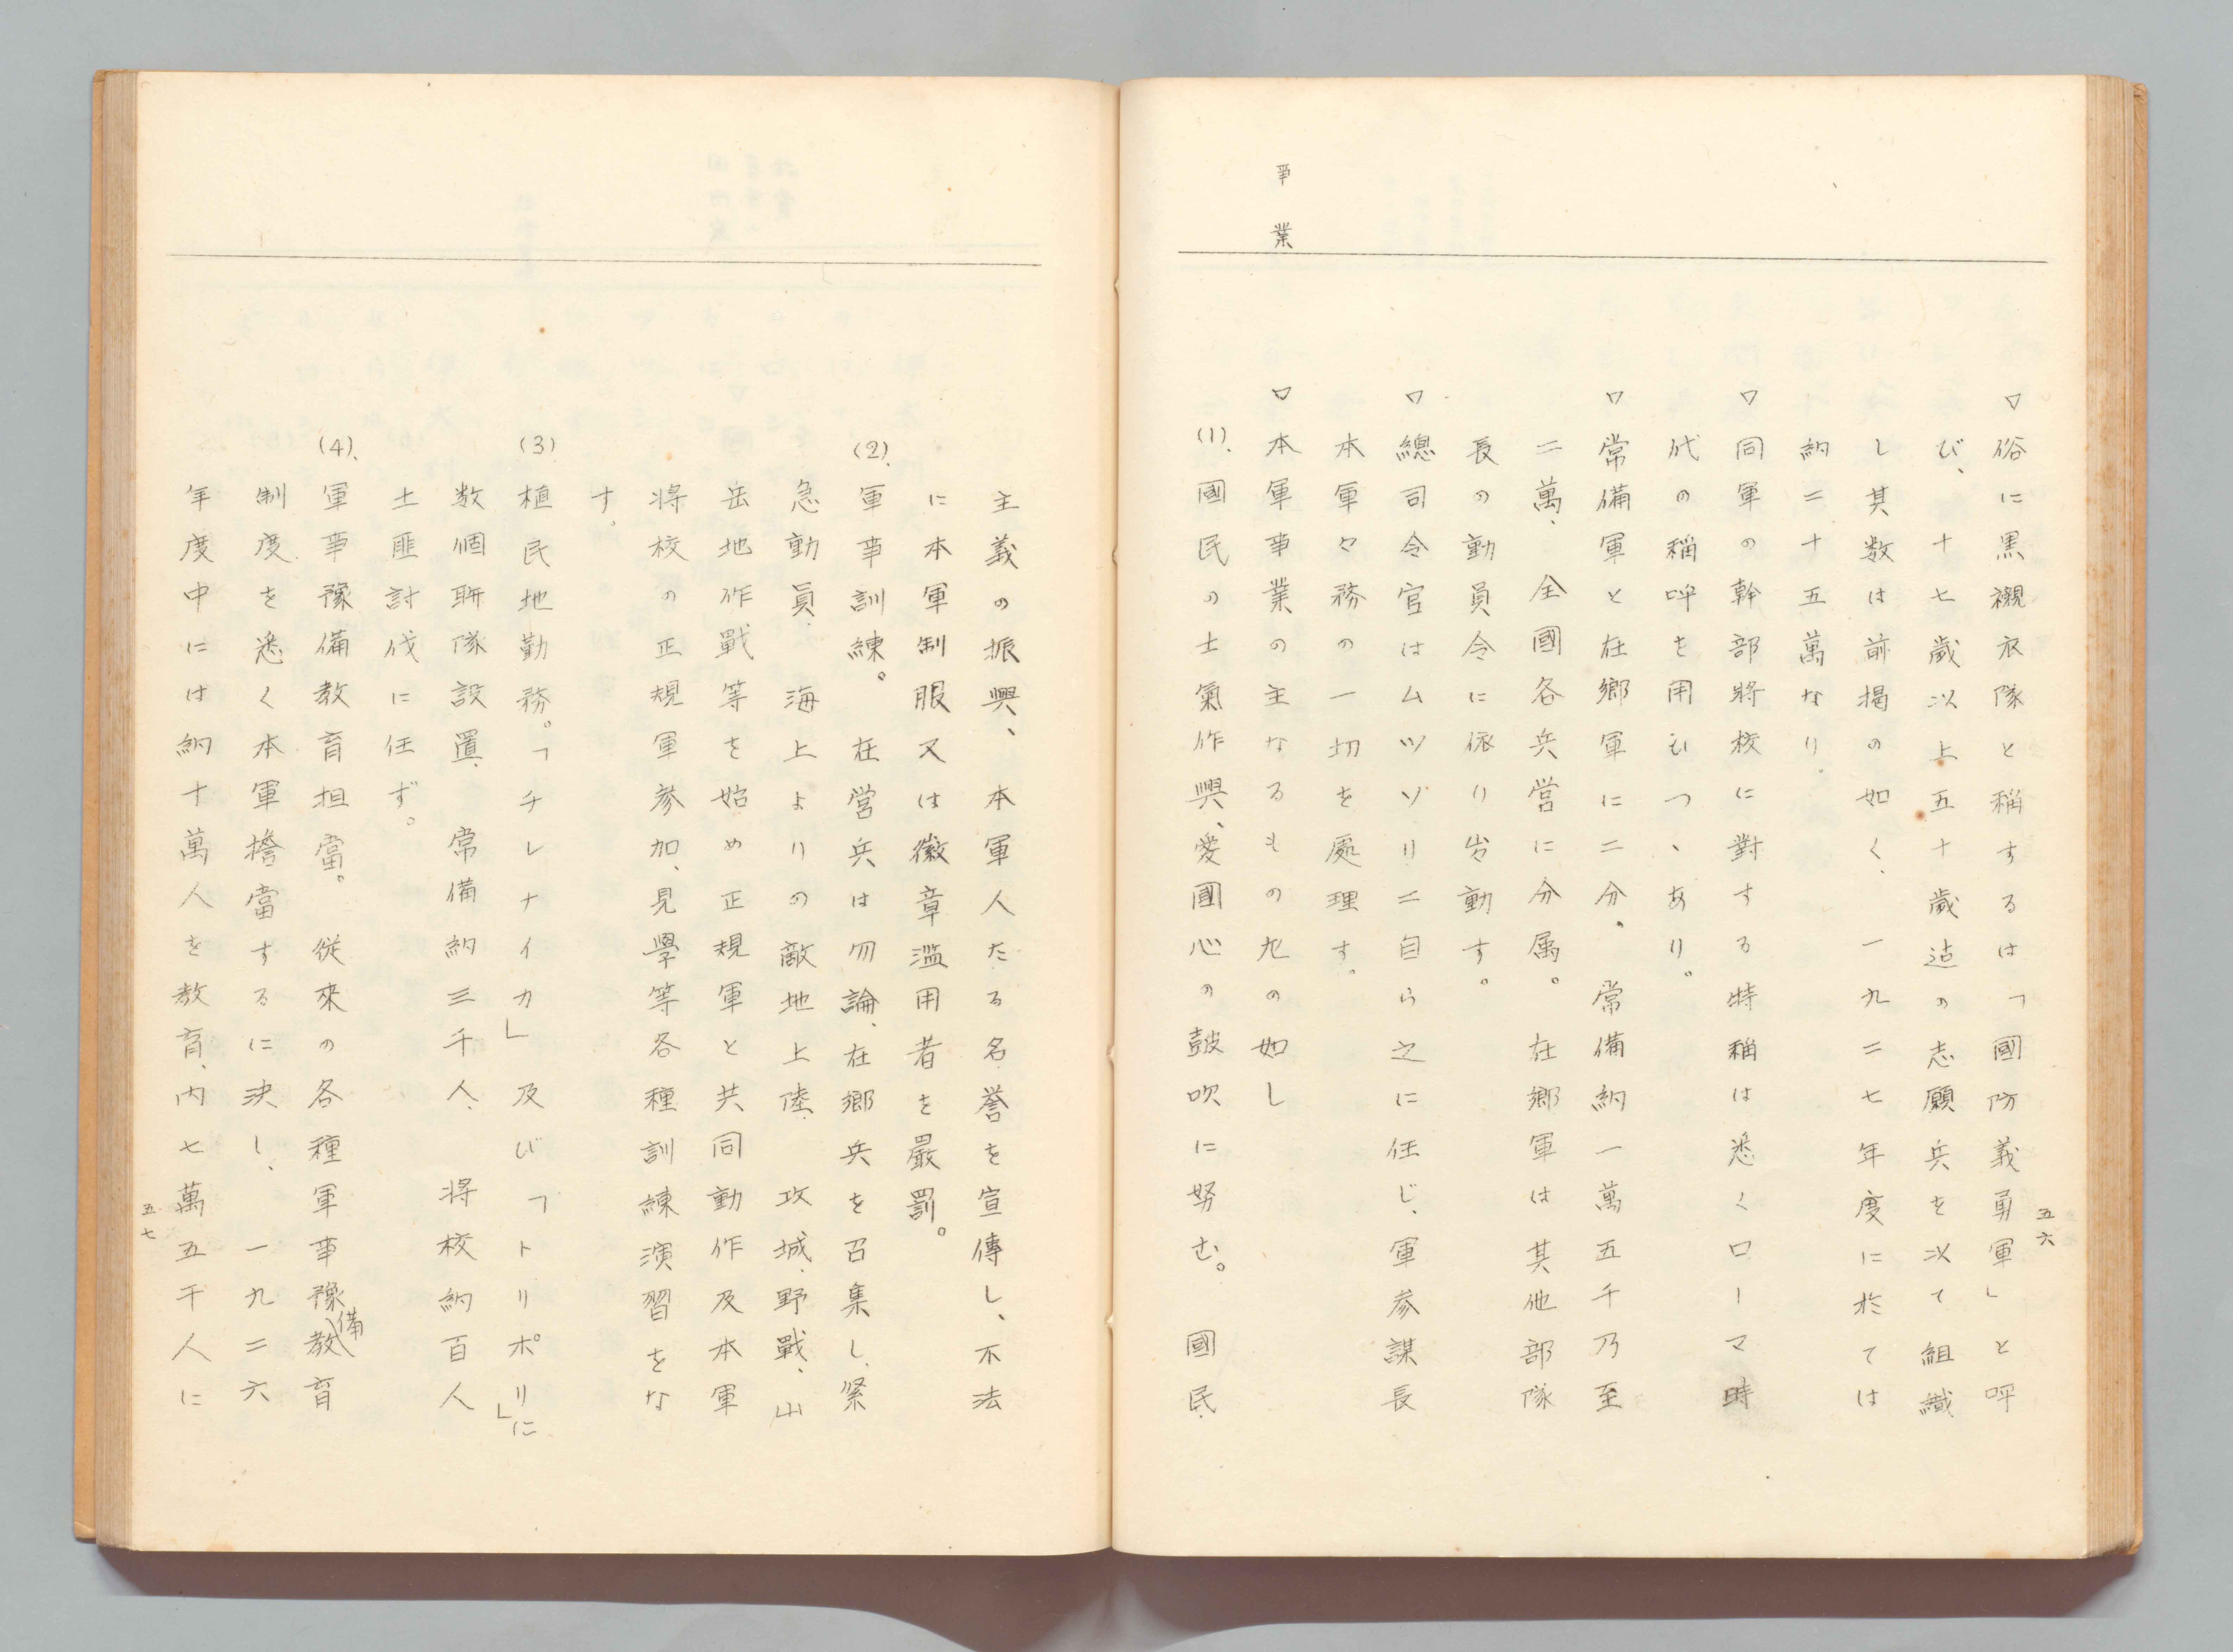 五六
▽俗に黒襯衣隊と稱するは「國防義勇軍」と呼
び、十七歳以上五十歳迠の志願兵を以て組織
し其数は前揭の如く、一九二七年度に於ては
納二十五萬なり。
▽同軍の幹部將校に對する特稱は悉くローマ時
代の稱呼を用ひつゝあり。
▽常備軍と在郷軍に二分、常備納一萬五千乃至
二萬、全國各兵営に分属。在郷軍は其他部隊
長の動員令に依り出動す。
▽總司令官はムツソリニ自ら之に任じ、軍参謀長
本軍々務の一切を處理す。
事業
▽本軍事業の主なるもの九の如し
(1)、國民の士氣作興、愛國心の鼓吹に努む。國民
主義の振興、本軍人たる名誉を宣傳し、不法
に本軍制服又は徽章濫用者を嚴罰。
(2)、軍事訓練。在営兵は勿論、在郷兵を召集し、緊
急動員、海上よりの敵地上陸、攻城、野戰、山
岳地作戰等を始め正規軍と共同動作及本軍
將校の正規軍参加、見學等各種訓練演習をな
す。
(3)植民地勤務。「チレナイカ」及び「トリポリ」に
数個聯隊設置、常備納三千人、將校納百人
土匪討伐に任ず。
(4)、軍事豫備教育担當。従來の各種軍事豫備教育
制度を悉く本軍擔當するに決し、一九二六
年度中には納十萬人を教育、内七萬五千人に
五七